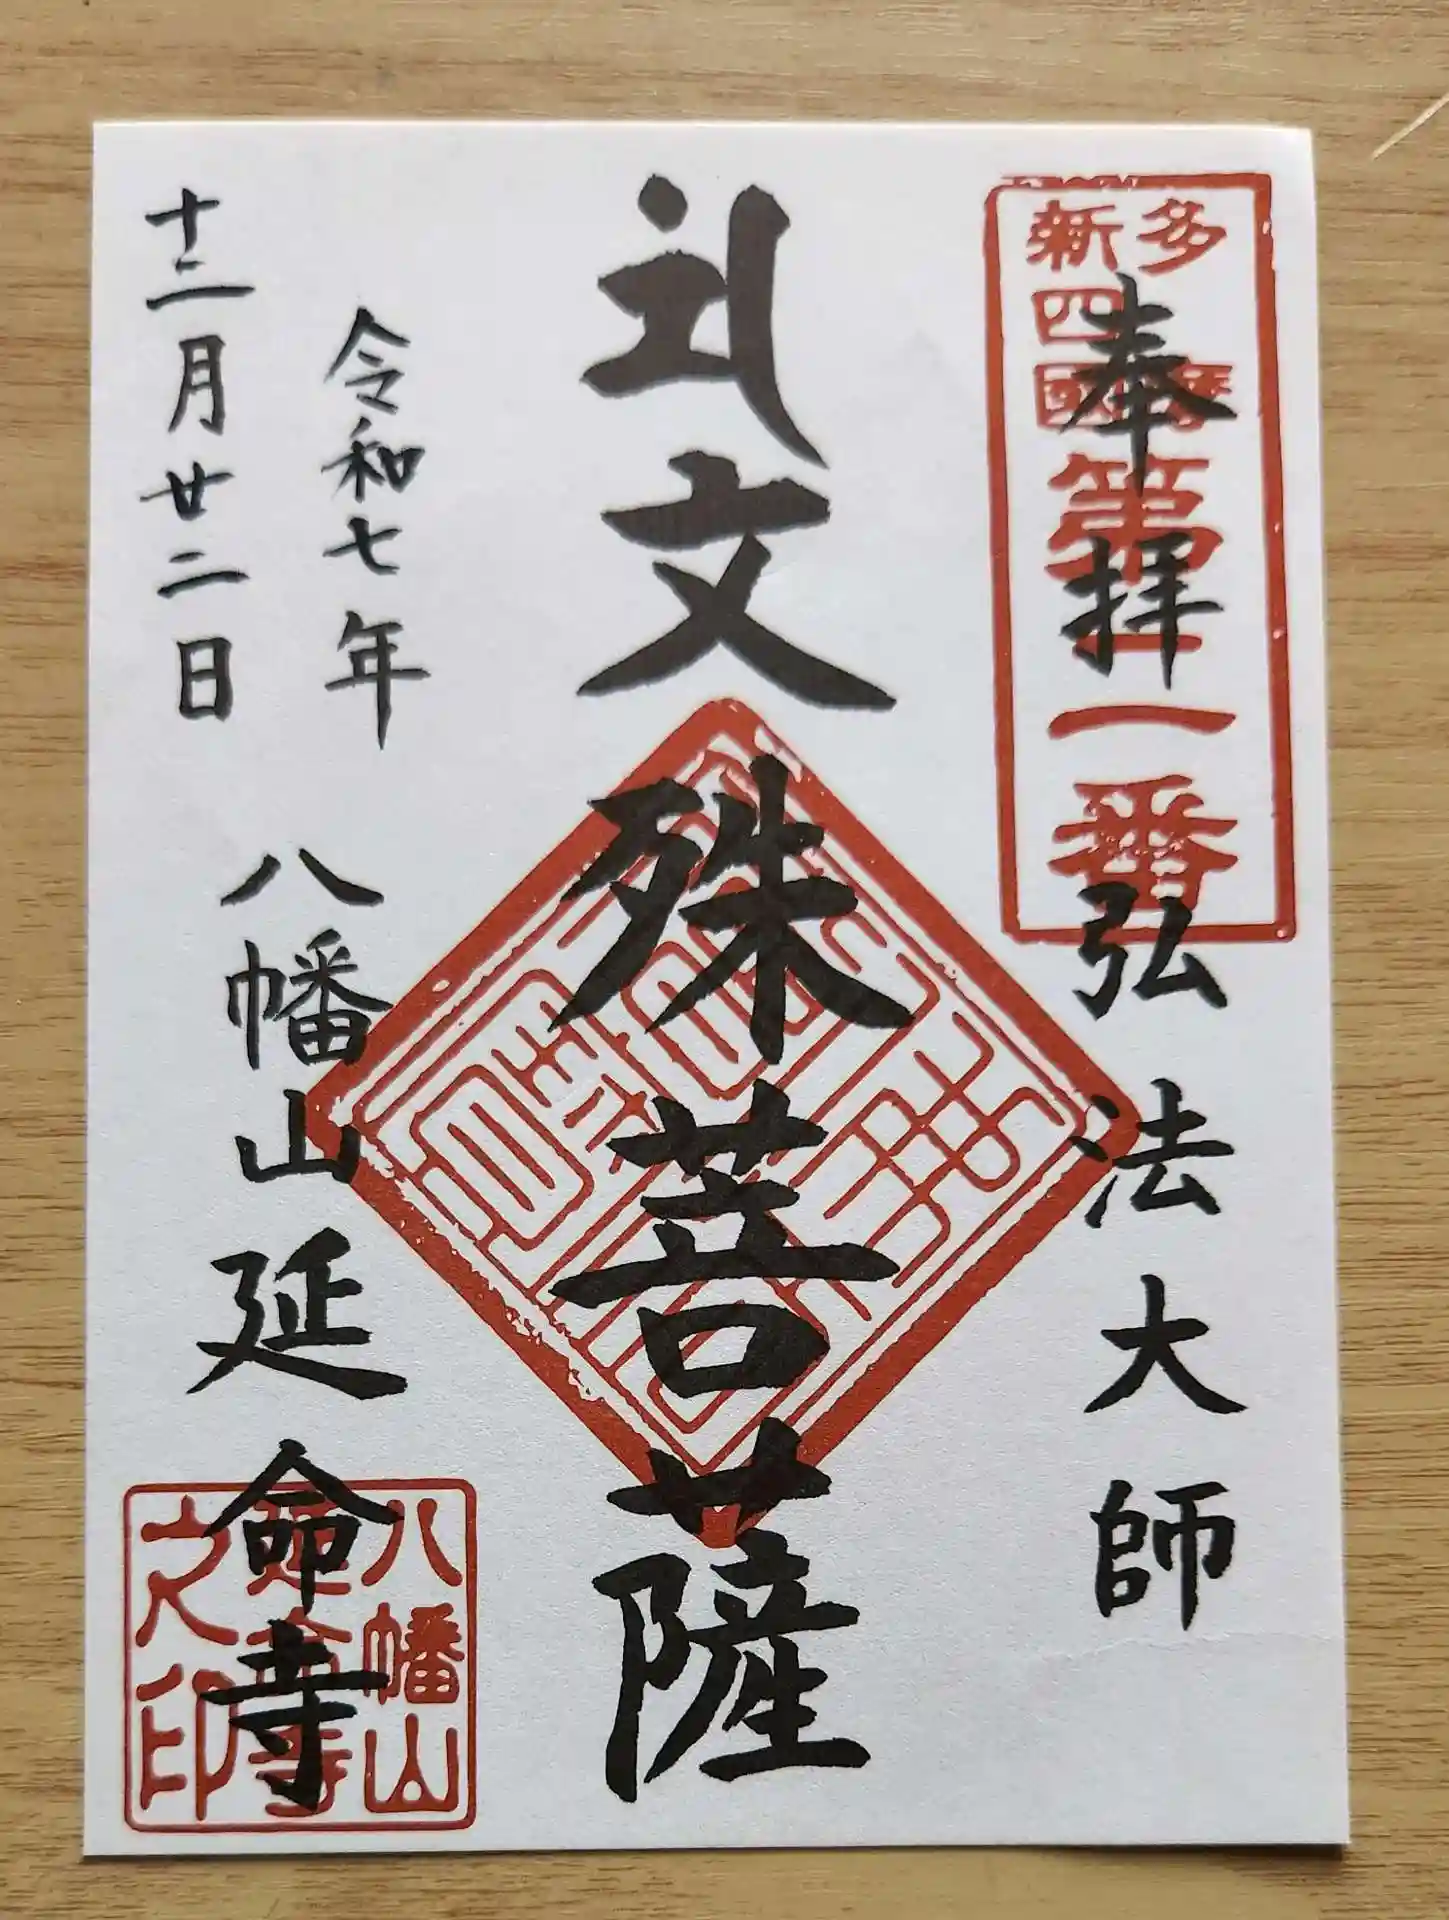 多摩
新四國
第二番
奉拝
弘法大師
文殊菩薩
令和七年
十二月廿二日
八幡山延命寺
八幡山
延命寺
之印